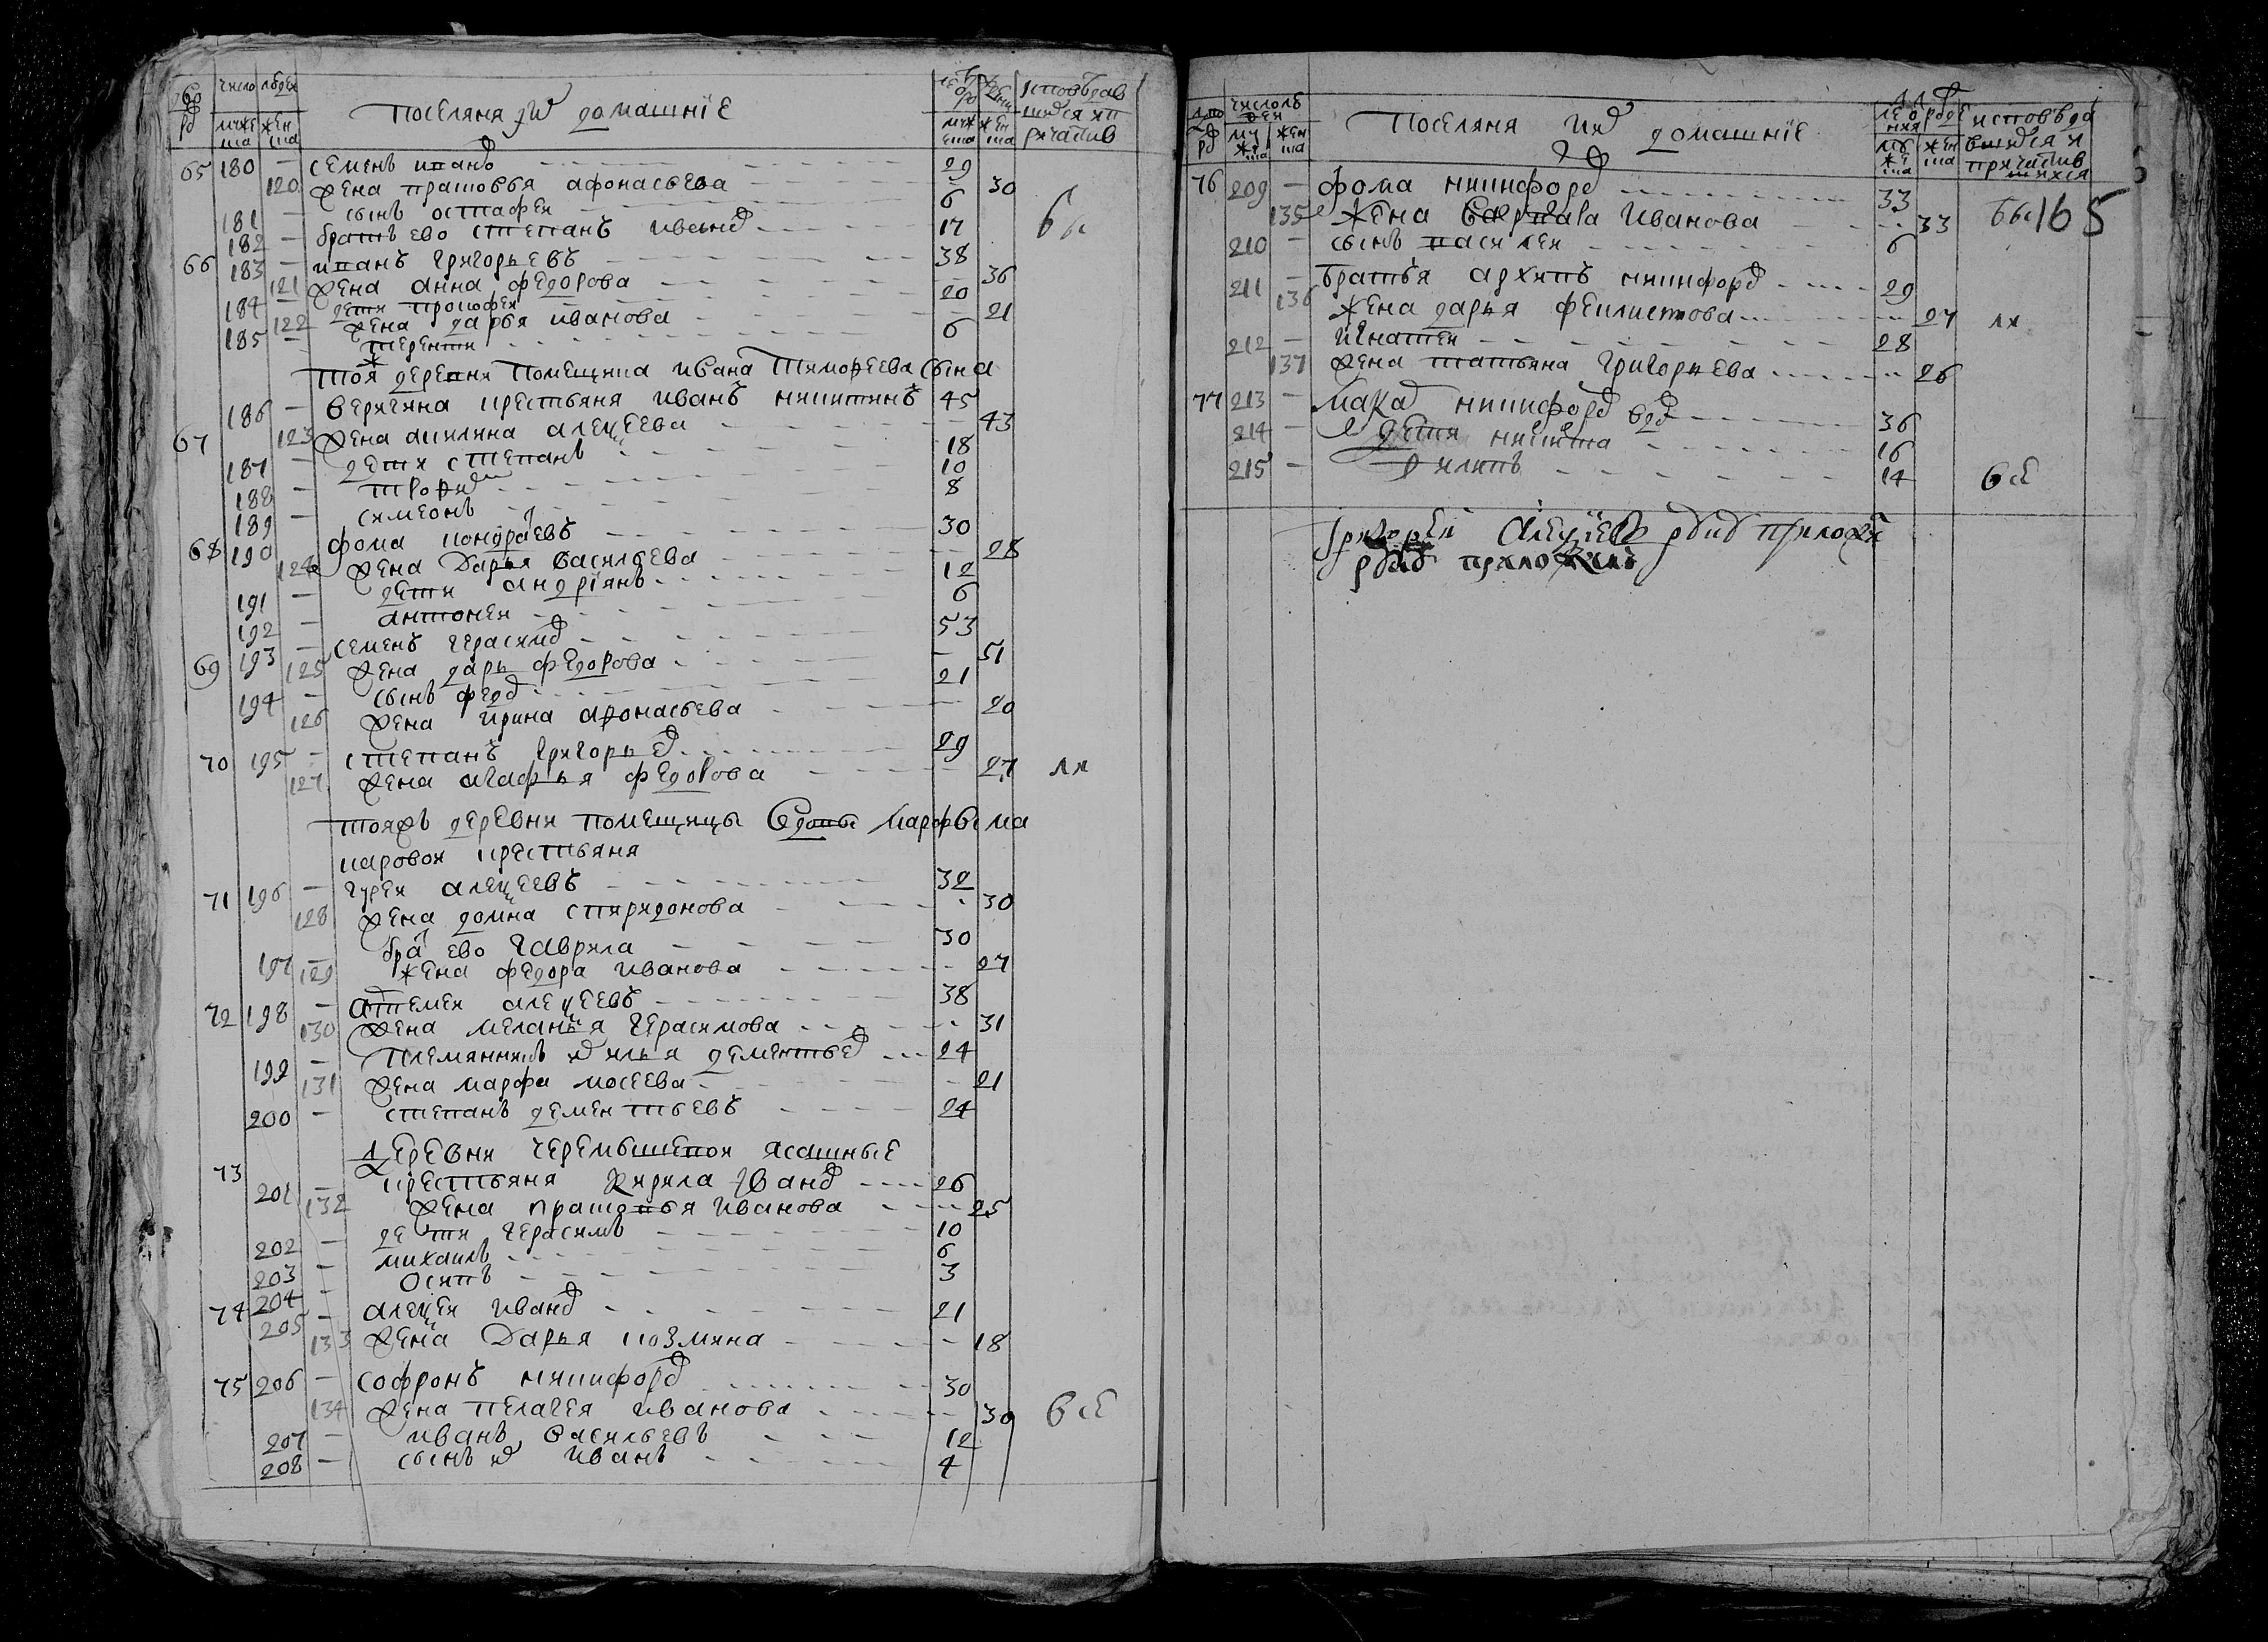 дво число людеи поселяня ихъ домашніе лѣта исповѣдав
ръ мужеска женска мужеска женска шихся и причастив
65 180 — семенъ иванъ 29
120 жена прасковья афонасьева 30
181 — сынъ остафеи 6
182 — братъ ево степанъ иванов 17
66 183 — иванъ григорьевъ 38
121 жена анна федорова 36
184 — дети прокофеи 20
122 жена дарья иванова 21
185 — терентеи 6
тоя ж деревни помещика ивана тимофеева сына
67 186 — веригина крестьяня иванъ никитинъ 45
123 жена акилина алексеева 43
187 — дети степанъ 18
188 — трофим 10
189 — симеонъ 8
68 190 фома кондратевъ 30
124 жена дарья васильева 28
191 — дети андріянъ 12
192 — антонеи 6
69 193 — семенъ герасимов 53
125 жена дарья федорова 51
194 — сынъ федор 21
126 жена ирина афонасьева 20
70 195 — степанъ григорьев 29
127 жена агафья федорова 27
тояжъ деревни помещицы вдовы марфы ма
каровои крестьяня
71 196 — гуреи алексеевъ 32
128 жена домна спиридонова 30
197 — брат ево гаврила 30
129 жена федора иванова 27
72 198 — артемеи алексеевъ 38
130 жена меланья герасимова 31
199 — племянникъ их илья дементьев 24
131 жена марфа мосеева 21
200 — степанъ дементьевъ 24
деревни черемышевои ясашные
73 201 — крестьяня кирила иванов 26
132 жена прасковья иванова 25
202 — дети герасимъ 10
203 — михаилъ 6
204 — осипъ 3
74 205 — алексеи иванов 21
133 жена дарья козмина 18
75 206 — софронъ никифоров 30
134 жена пелагея иванова 30 все
207 — иванъ васильевъ 12
208 — сынъ их иванъ 4
число людеи поселяня их домашніе исповѣда
мужеска женска вшихся и
причастив
шихся
165
76 209 — фома никифоров 33
135 жена варвара иванова 33
210 — сынъ василеи 6
211 — братья архипъ никифоров 29
136 жена дарья феклистова 27
212 — игнатеи 28
137 жена татьяна григорьева 26
77 213 — макар никифоров вдов 36
214 — дети никита 16
215 — филипъ 14 все
григореи алексеев руку приложи
руку приложилъ